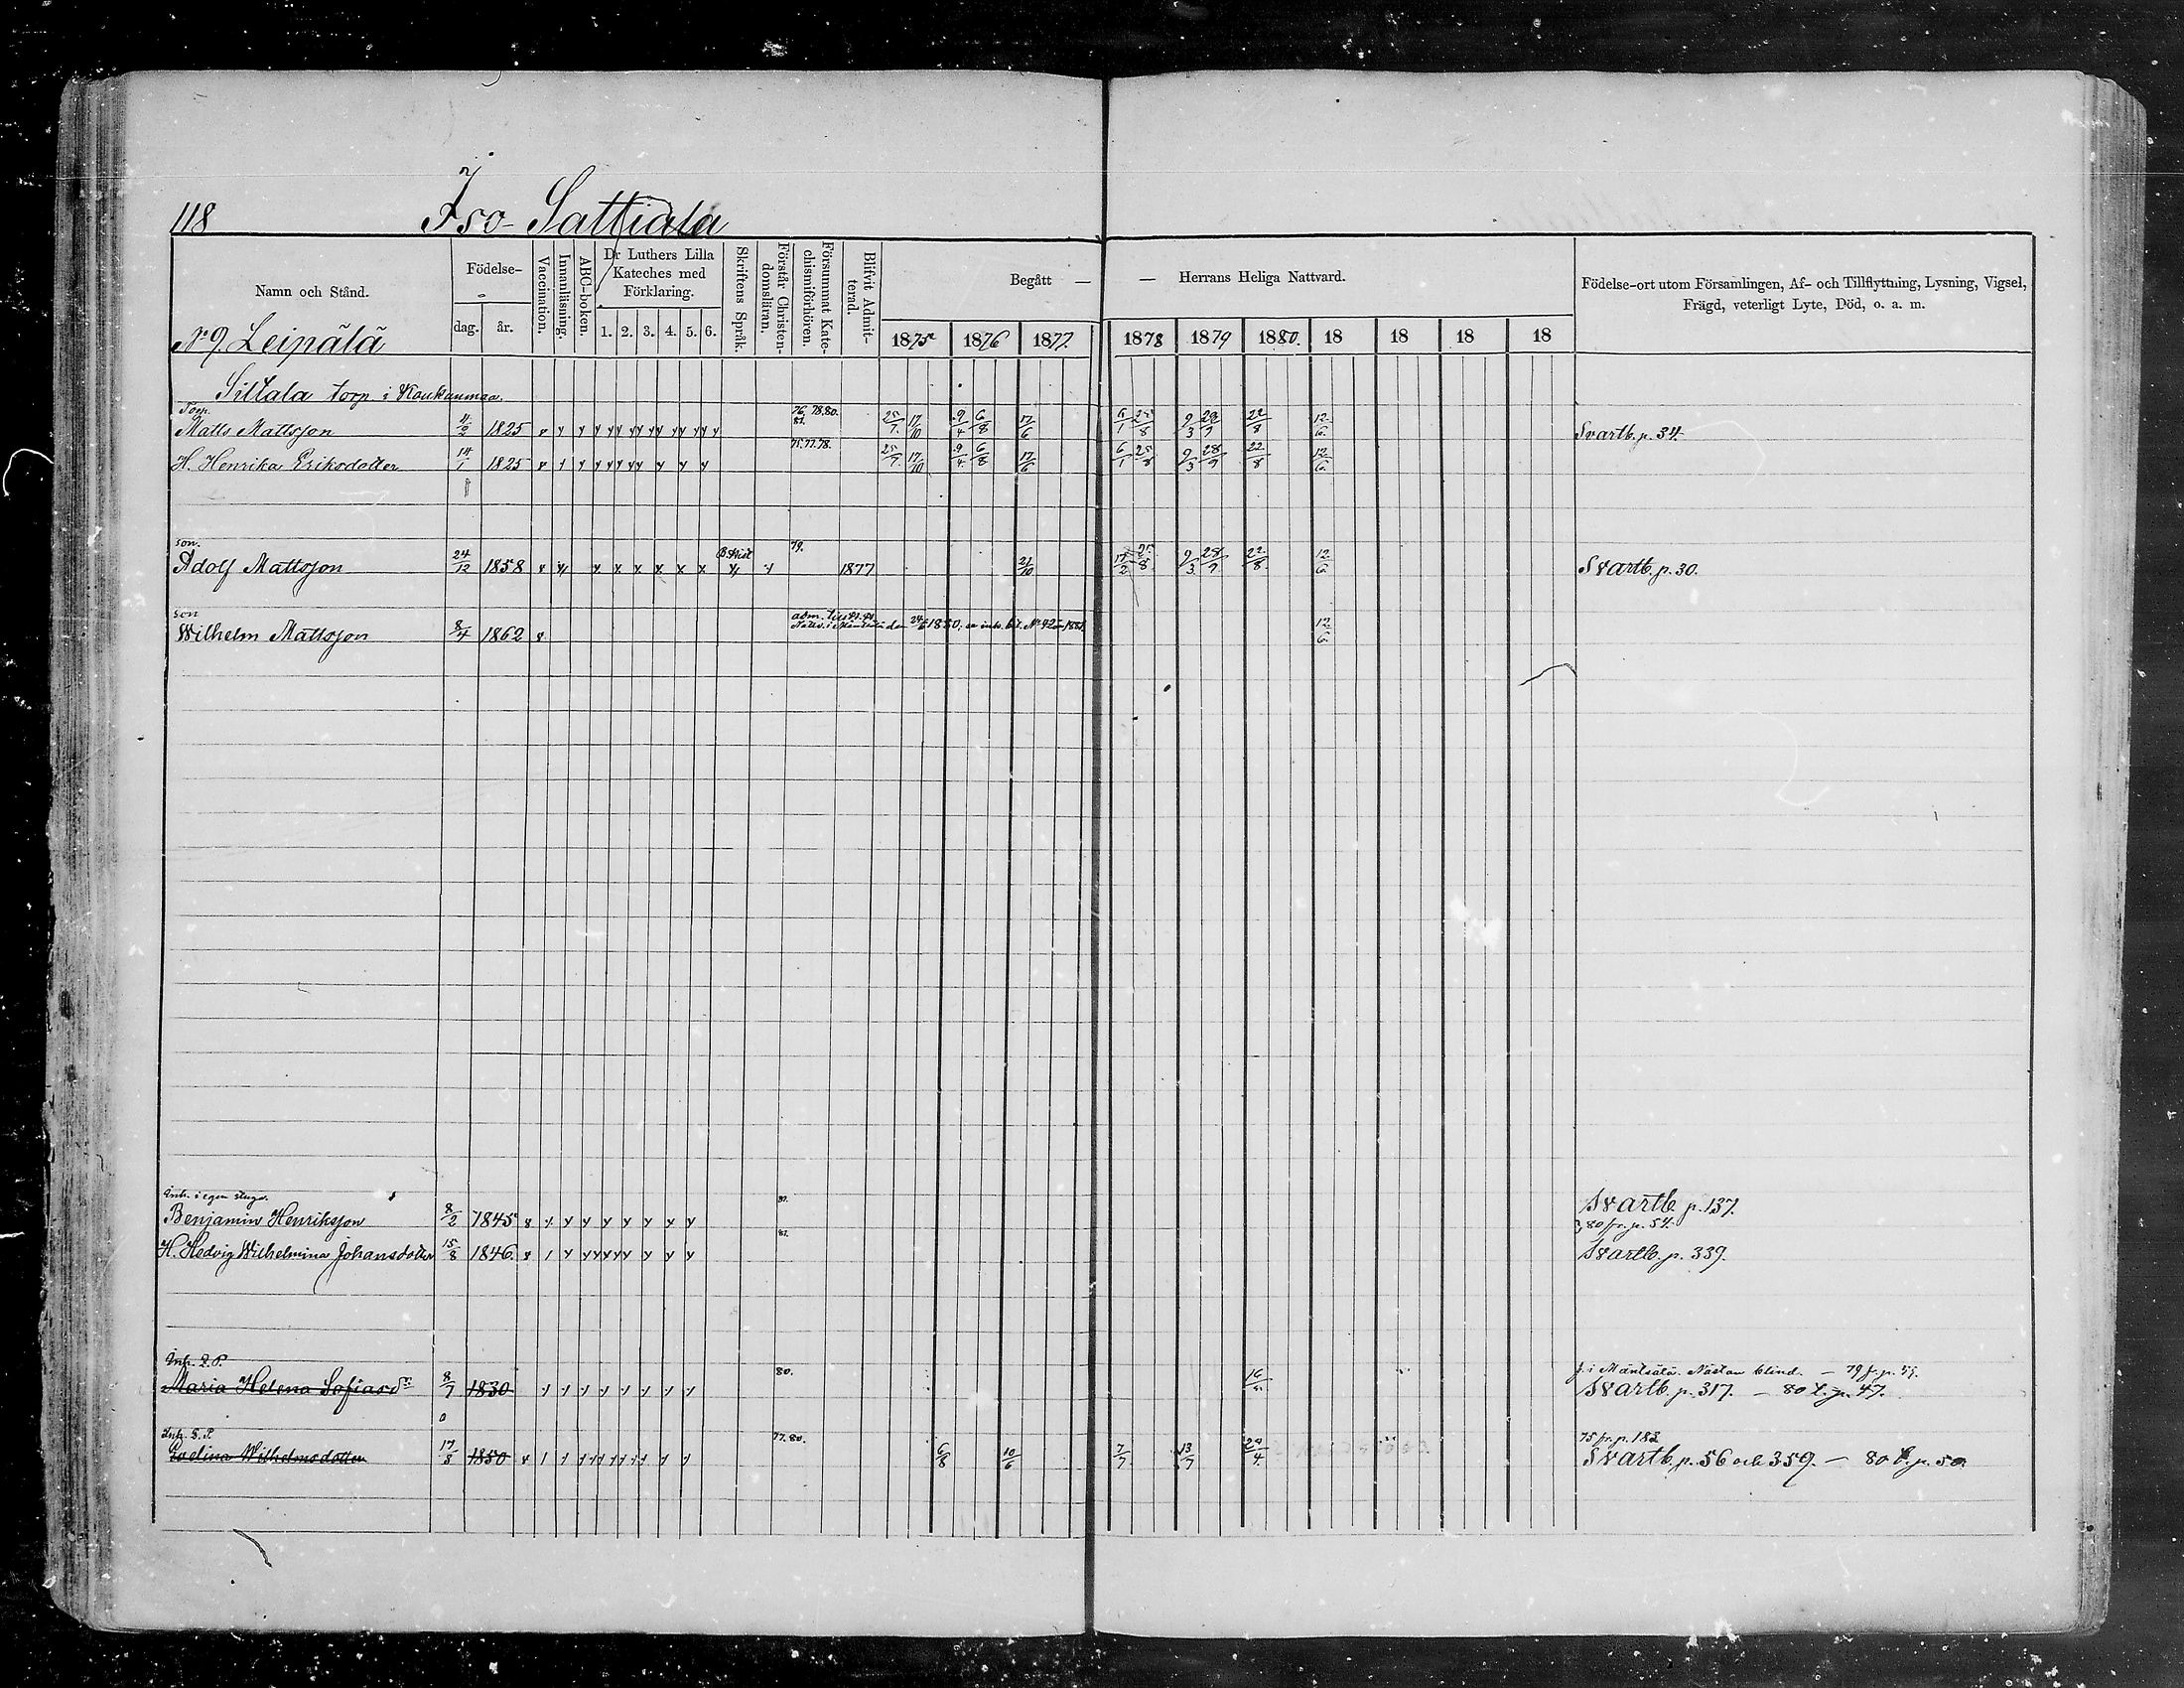 118 Iso-Sattiala
Namn och Stånd.
Födelse-
dag. år.
Vaccination.
Innanläsning.
ABC-boken.
Dr Luthers Lilla
Kateches med
Förklaring.
1. 2. 3. 4. 5. 6.
Skriftens Språk.
Förstår Christen-
domsläran.
Försummat Kate-
chismiförhören.
Blifvit Admit-
terad.
Begått — — Herrans Heliga Nattvard.
1875 1876 1877. 1878 1879 1880. 18 18 18 18
Födelse-ort utom Församlingen, Af- och Tillflyttning, Lysning, Vigsel,
Frägd, veterligt Lyte, Död, o. a. m.
No 9. Leipälä
Siltala torp i Koukunmaa.
Torp. 76. 78. 80.
81.
Matts Mattsson 4/2 1825 25/7. 17/10 9/4 6/8 17/6 6/1 25/8 9/3 28/9 22/8 12/6. Svartb. p. 34.
75. 77. 78.
H. Henrika Eriksdotter 14/1 1825 25/7. 17/10 9/4. 6/8 17/6 6/1 25/8 9/3 28/9 22/8 12/6.
son. 79.
Adolf Mattsson 24/12 1858 1877 21/10 17/2 25/8 9/3 28/9 22/8. 12/6. Svartb. p. 30.
son
Wilhelm Mattsson 8/4 1862 12/6.
Inh. i egen stuga. 81.
Benjamin Henriksson 8/2 1845 Svartb. p. 137.
80 fr. p. 54.
81.
H. Hedvig Wilhelmina Johansdotter 15/8 1846. Svartb. p. 339.
Inh. 2. P. 80. f. i Mäntsälä. Nästan blind. — 79 fr. p. 59.
Maria Helena Safiasdr 8/7 1830 Svartb. p. 317. — 80 t. p. 47.
Inh. S. P. 77. 80. 75 fr. p. 182
Evelina Wilhelmsdotter 17/8 1850 6/8 10/6 7/7 13/7 29/4. Svartb. p. 56 och 359. — 80 t. p. 50.